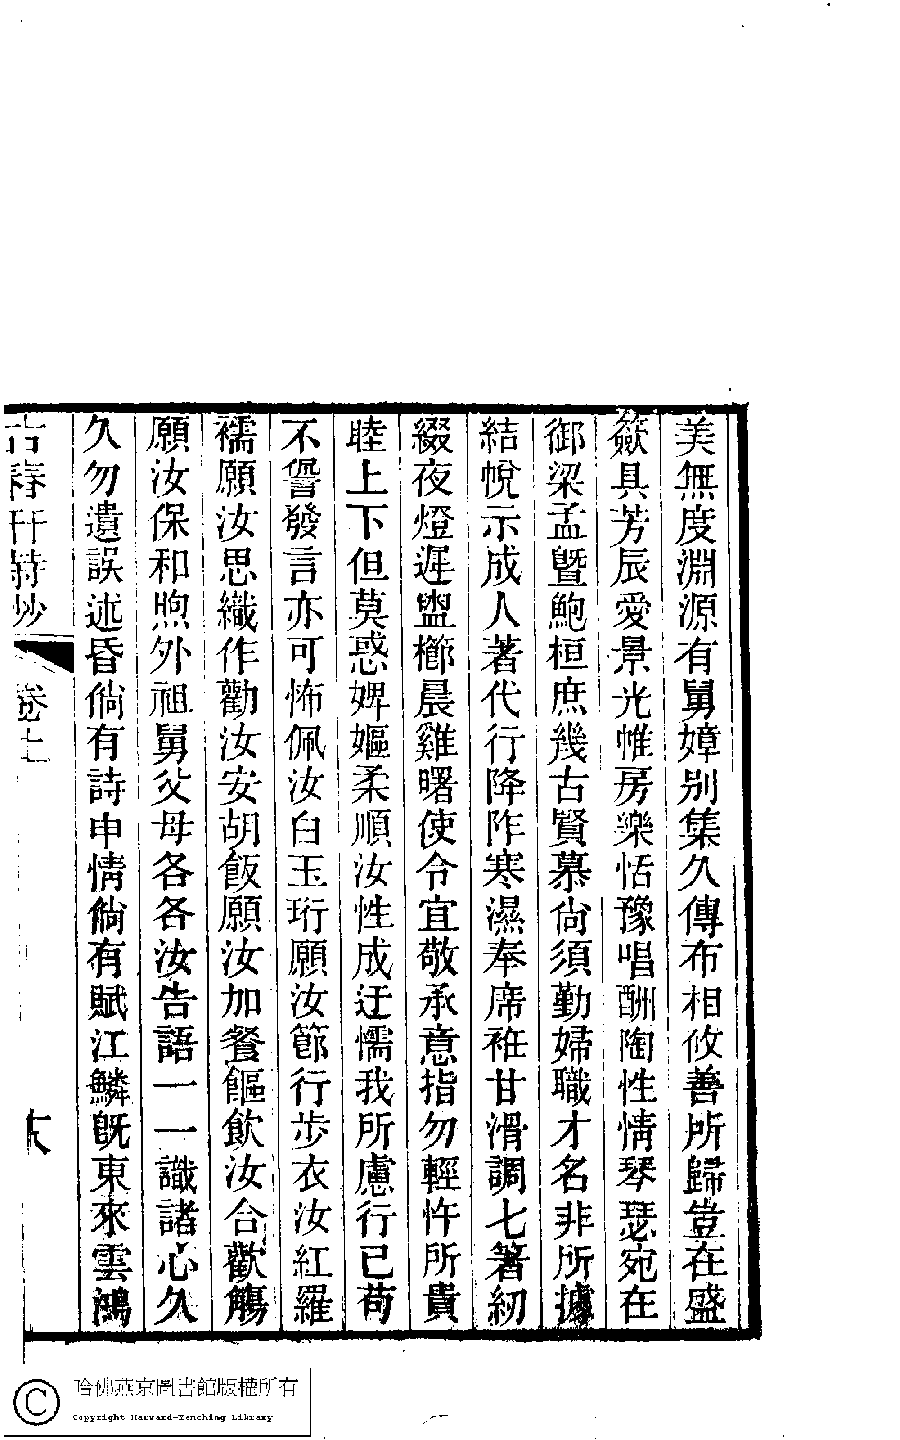 美無度淵源有舅嫜别集久傳布相攸善所歸豈在盛
籢具芳辰愛景光帷房樂恬豫唱酬陶性情琴瑟宛在
御梁孟暨鮑桓庶幾古賢慕尙須勤婦職才名非所據
結帨示成人著代行降阼寒濕奉席袵甘滑調七箸紉
綴夜燈遲盥櫛晨雞曙使令宜敬承意指勿輕忤所貴
睦上下但莫惑婢嫗柔順汝性成迂懦我所慮行已苟
不諐發言亦可怖佩汝白玉珩願汝節行步衣汝紅羅
襦願汝思織作勸汝安胡飯願汝加餐饇飲汝合歡觴
願汝保和煦外祖舅父母各各汝告語一一識諸心久
久勿遺誤述昏倘有詩申情倘有賦江鱗旣東來雲鴻
卷上
哈佛燕京圖書館版權所有
Copyright Harvard-Yenching Library